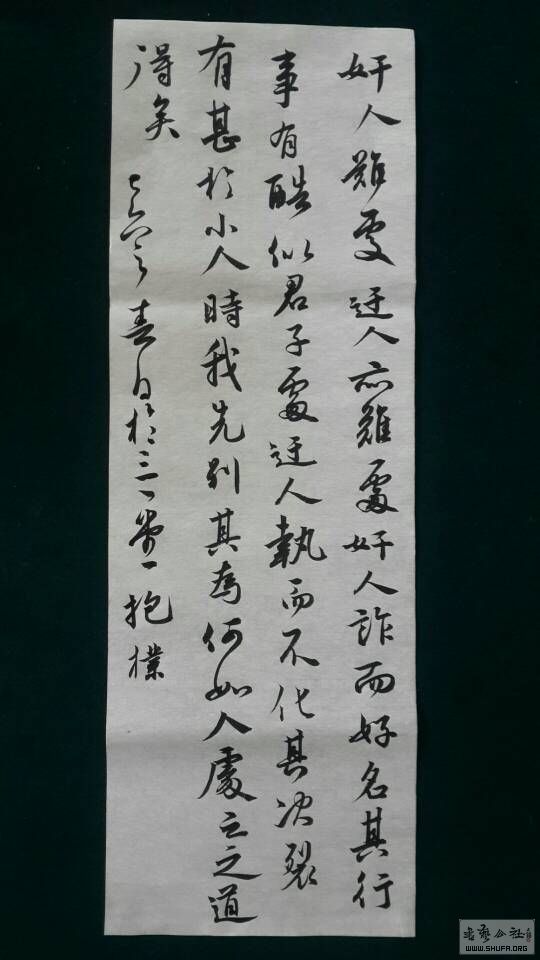 奸人難處迂人亦難處奸人詐而好名其行
事有酷似君子處迂人執而不化其決裂
有甚於小人時我先別其為何如人處之之道
得矣 春日於三一堂 抱樸
WWW.SHUFA.ORG